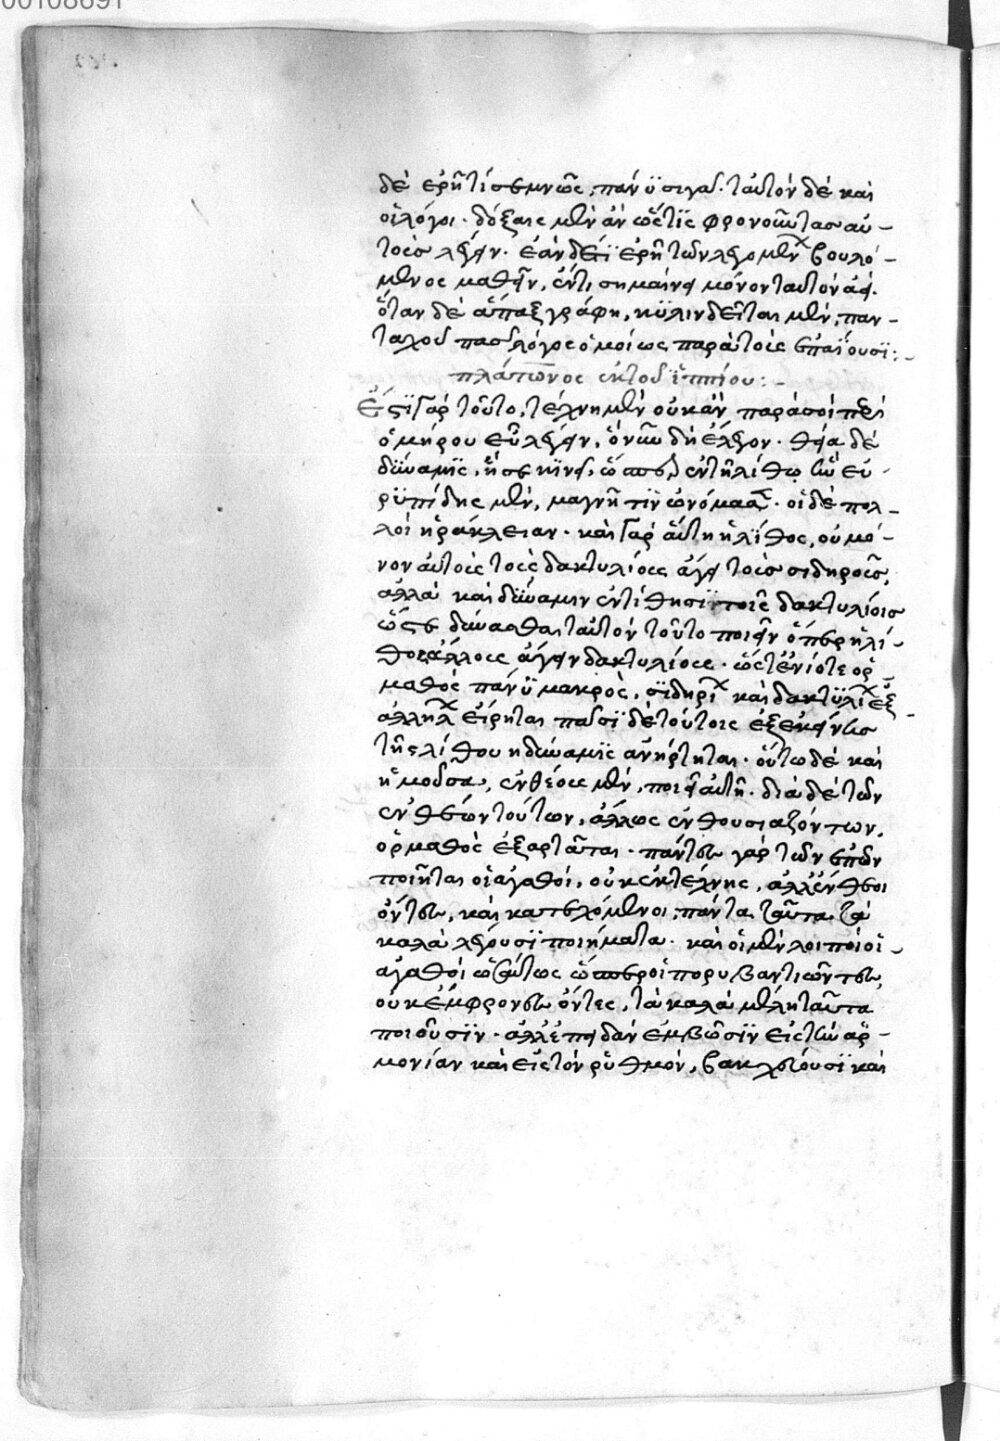 00108691
δὲ ἔρηταί τις σεμνῶς, πάνυ σιγᾷ. ταὐτὸν δὲ καὶ
οἱ λόγοι. δόξαις μὲν ἂν ὥς τι φρονοῦντας αὐ-
τοὺς λέγειν. ἐὰν δέ τι ἔρῃ τῶν λεγομένων βουλό-
μενος μαθεῖν, ἕν τι σημαίνει μόνον ταὐτὸν ἀεί.
ὅταν δὲ ἅπαξ γραφῇ, κυλινδεῖται μὲν, παν-
ταχοῦ πᾶς λόγος ὁμοίως παρὰ τοῖς ἐπαΐουσι:-
πλάτωνος ἐκ τοῦ ἱππίου:-
Ἔστι γὰρ τοῦτο, τέχνη μὲν οὐκ ἂν παρὰ σοὶ περὶ
ὁμήρου εὖ λέγειν, ὃ νῦν δὴ ἔλεγον. θεία δὲ
δύναμις, ἥ σε κινεῖ, ὥσπερ ἐν τῇ λίθῳ ἣν εὐ-
ριπίδης μὲν, μαγνῆτιν ὠνόμασεν. οἱ δὲ πολ-
λοὶ ἡράκλειαν. καὶ γὰρ αὕτη ἡ λίθος, οὐ μό-
νον αὐτοὺς τοὺς δακτυλίους ἄγει τοὺς σιδηροῦς,
ἀλλὰ καὶ δύναμιν ἐντίθησι τοῖς δακτυλίοις
ὥστε δύνασθαι ταὐτὸν τοῦτο ποιεῖν ὅπερ ἡ λί-
θος, ἄλλους ἄγειν δακτυλίους. ὥστ' ἐνίοτε ὁρ-
μαθὸς πάνυ μακρὸς, σιδηρίων καὶ δακτυλίων ἐξ
ἀλλήλων εἴρηται πᾶσι δὲ τούτοις ἐξ ἐκείνης
τῆς λίθου ἡ δύναμις ἀνήρτηται. οὕτω δὲ καὶ
ἡ μοῦσα, ἐνθέους μὲν, ποιεῖ αὐτή. διὰ δὲ τῶν
ἐνθέων τούτων, ἄλλως ἐνθουσιαζόντων,
ὁρμαθὸς ἐξαρτᾶται. πάντες γὰρ τῶν ἐπῶν
ποιηταὶ οἱ ἀγαθοὶ, οὐκ ἐκ τέχνης, ἀλλ' ἔνθεοι
ὄντες, καὶ κατεχόμενοι, πάντα ταῦτα τὰ
καλὰ λέγουσι ποιήματα. καὶ οἱ μελοποιοὶ οἱ
ἀγαθοὶ ὡσαύτως ὥσπερ οἱ κορυβαντιῶντες,
οὐκ ἔμφρονες ὄντες, τὰ καλὰ μέλη ταῦτα
ποιοῦσιν. ἀλλ' ἐπειδὰν ἐμβῶσιν εἰς τὴν ἁρ-
μονίαν καὶ εἰς τὸν ῥυθμὸν, βακχεύουσι καὶ